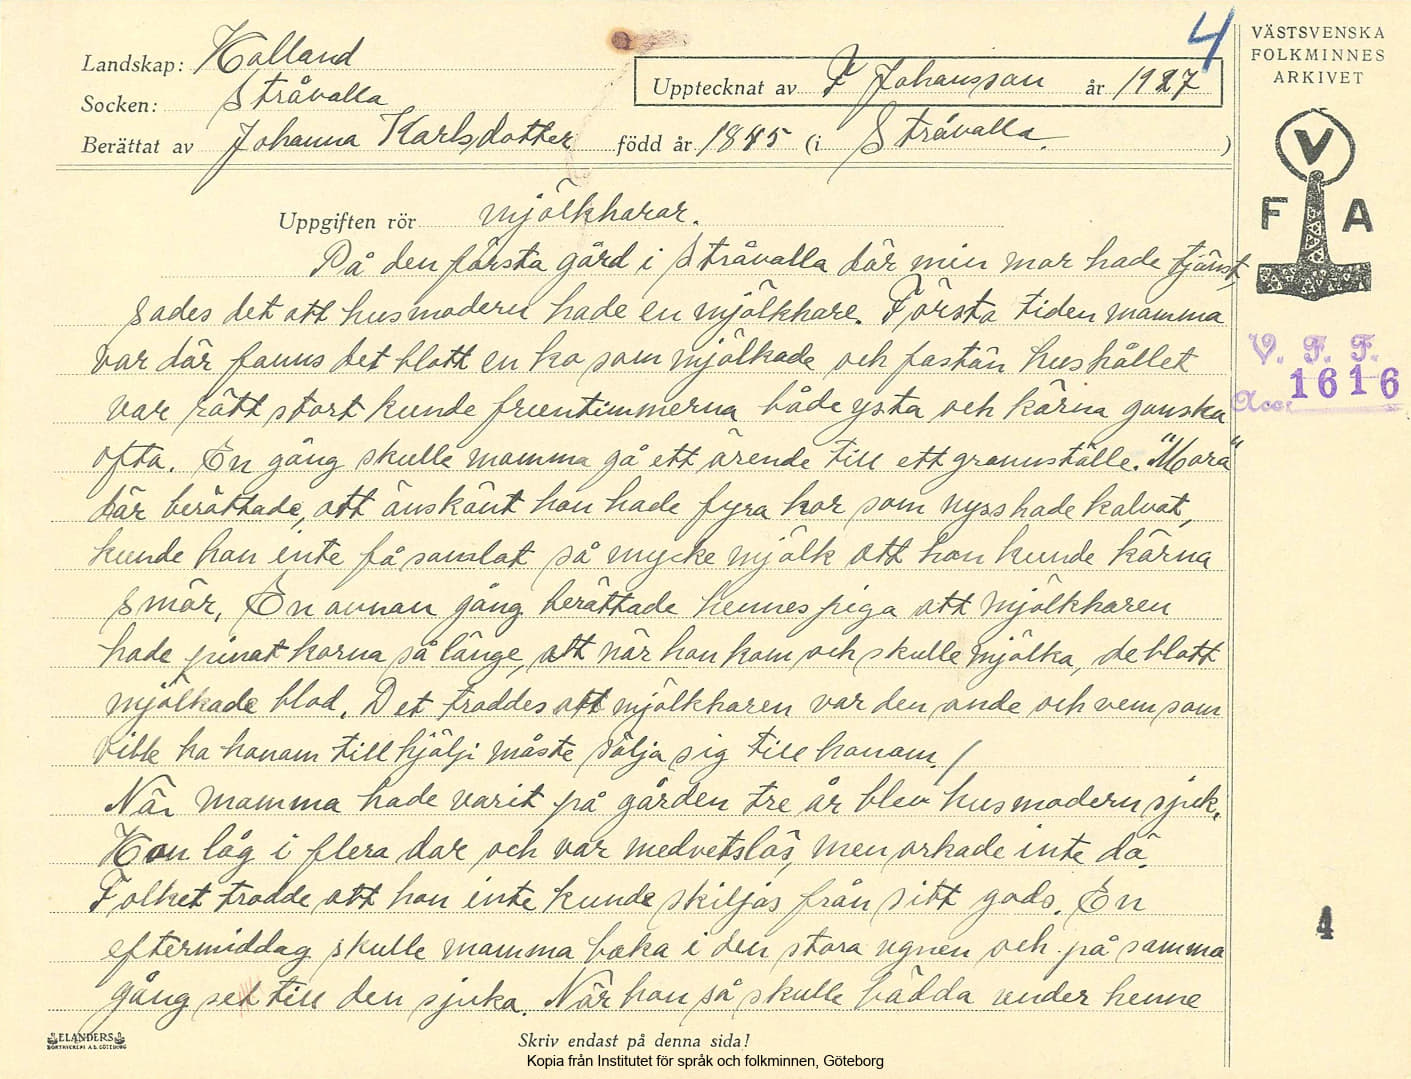 4
VÄSTSVENSKA
FOLKMINNES
ARKIVET
Landskap: Halland
Upptecknat av F Johansson år 1927
Socken: Stråvalla
Berättat av Johanna Karlsdotter född år 1845 (i Stråvalla.)
V
F A
Uppgiften rör mjölkharar.
På den första gård i Stråvalla där min mor hade tjänst,
sades det att husmodern hade en mjölkhare. Första tiden mamma
var där fanns det blott en ko som mjölkade och fastän hushållet
V. F. F.
Acc: 1616
var rätt stort kunde fruntimmerna både ysta och kärna ganska
ofta. En gång skulle mamma gå ett ärende till ett grannställe. "Mora"
där berättade, att änskänt hon hade fyra kor som nyss hade kalvat,
kunde hon inte få samlat så mycke mjölk att hon kunde kärna
smör. En annan gång berättade hennes piga att mjölkharen
hade pinat korna så länge, att när hon kom och skulle mjölka, de blott
mjölkade blod. Det troddes att mjölkharen var den onde och vem som
ville ha honom till hjälp måste sälja sig till honom. /
När mamma hade varit på gården tre år blev husmodern sjuk.
Hon låg i flera dar och var medvetslös, men orkade inte dö.
Folket trodde att hon inte kunde skiljas från sitt gods. En
4
eftermiddag skulle mamma baka i den stora ugnen och på samma
gång se till den sjuka. När hon så skulle bädda under henne
ELANDERS
BOKTRYCKERI A.B. GÖTEBORG
Skriv endast på denna sida!
Kopia från Institutet för språk och folkminnen, Göteborg